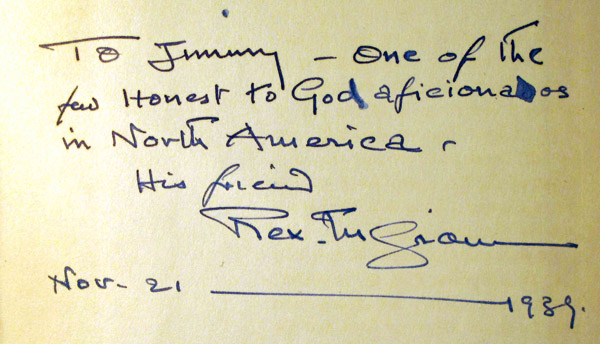 To Jimmy – One of the
few Honest to God aficionados
in North America.
His friend
Rex. Ingram
Nov- 21 — 1939.